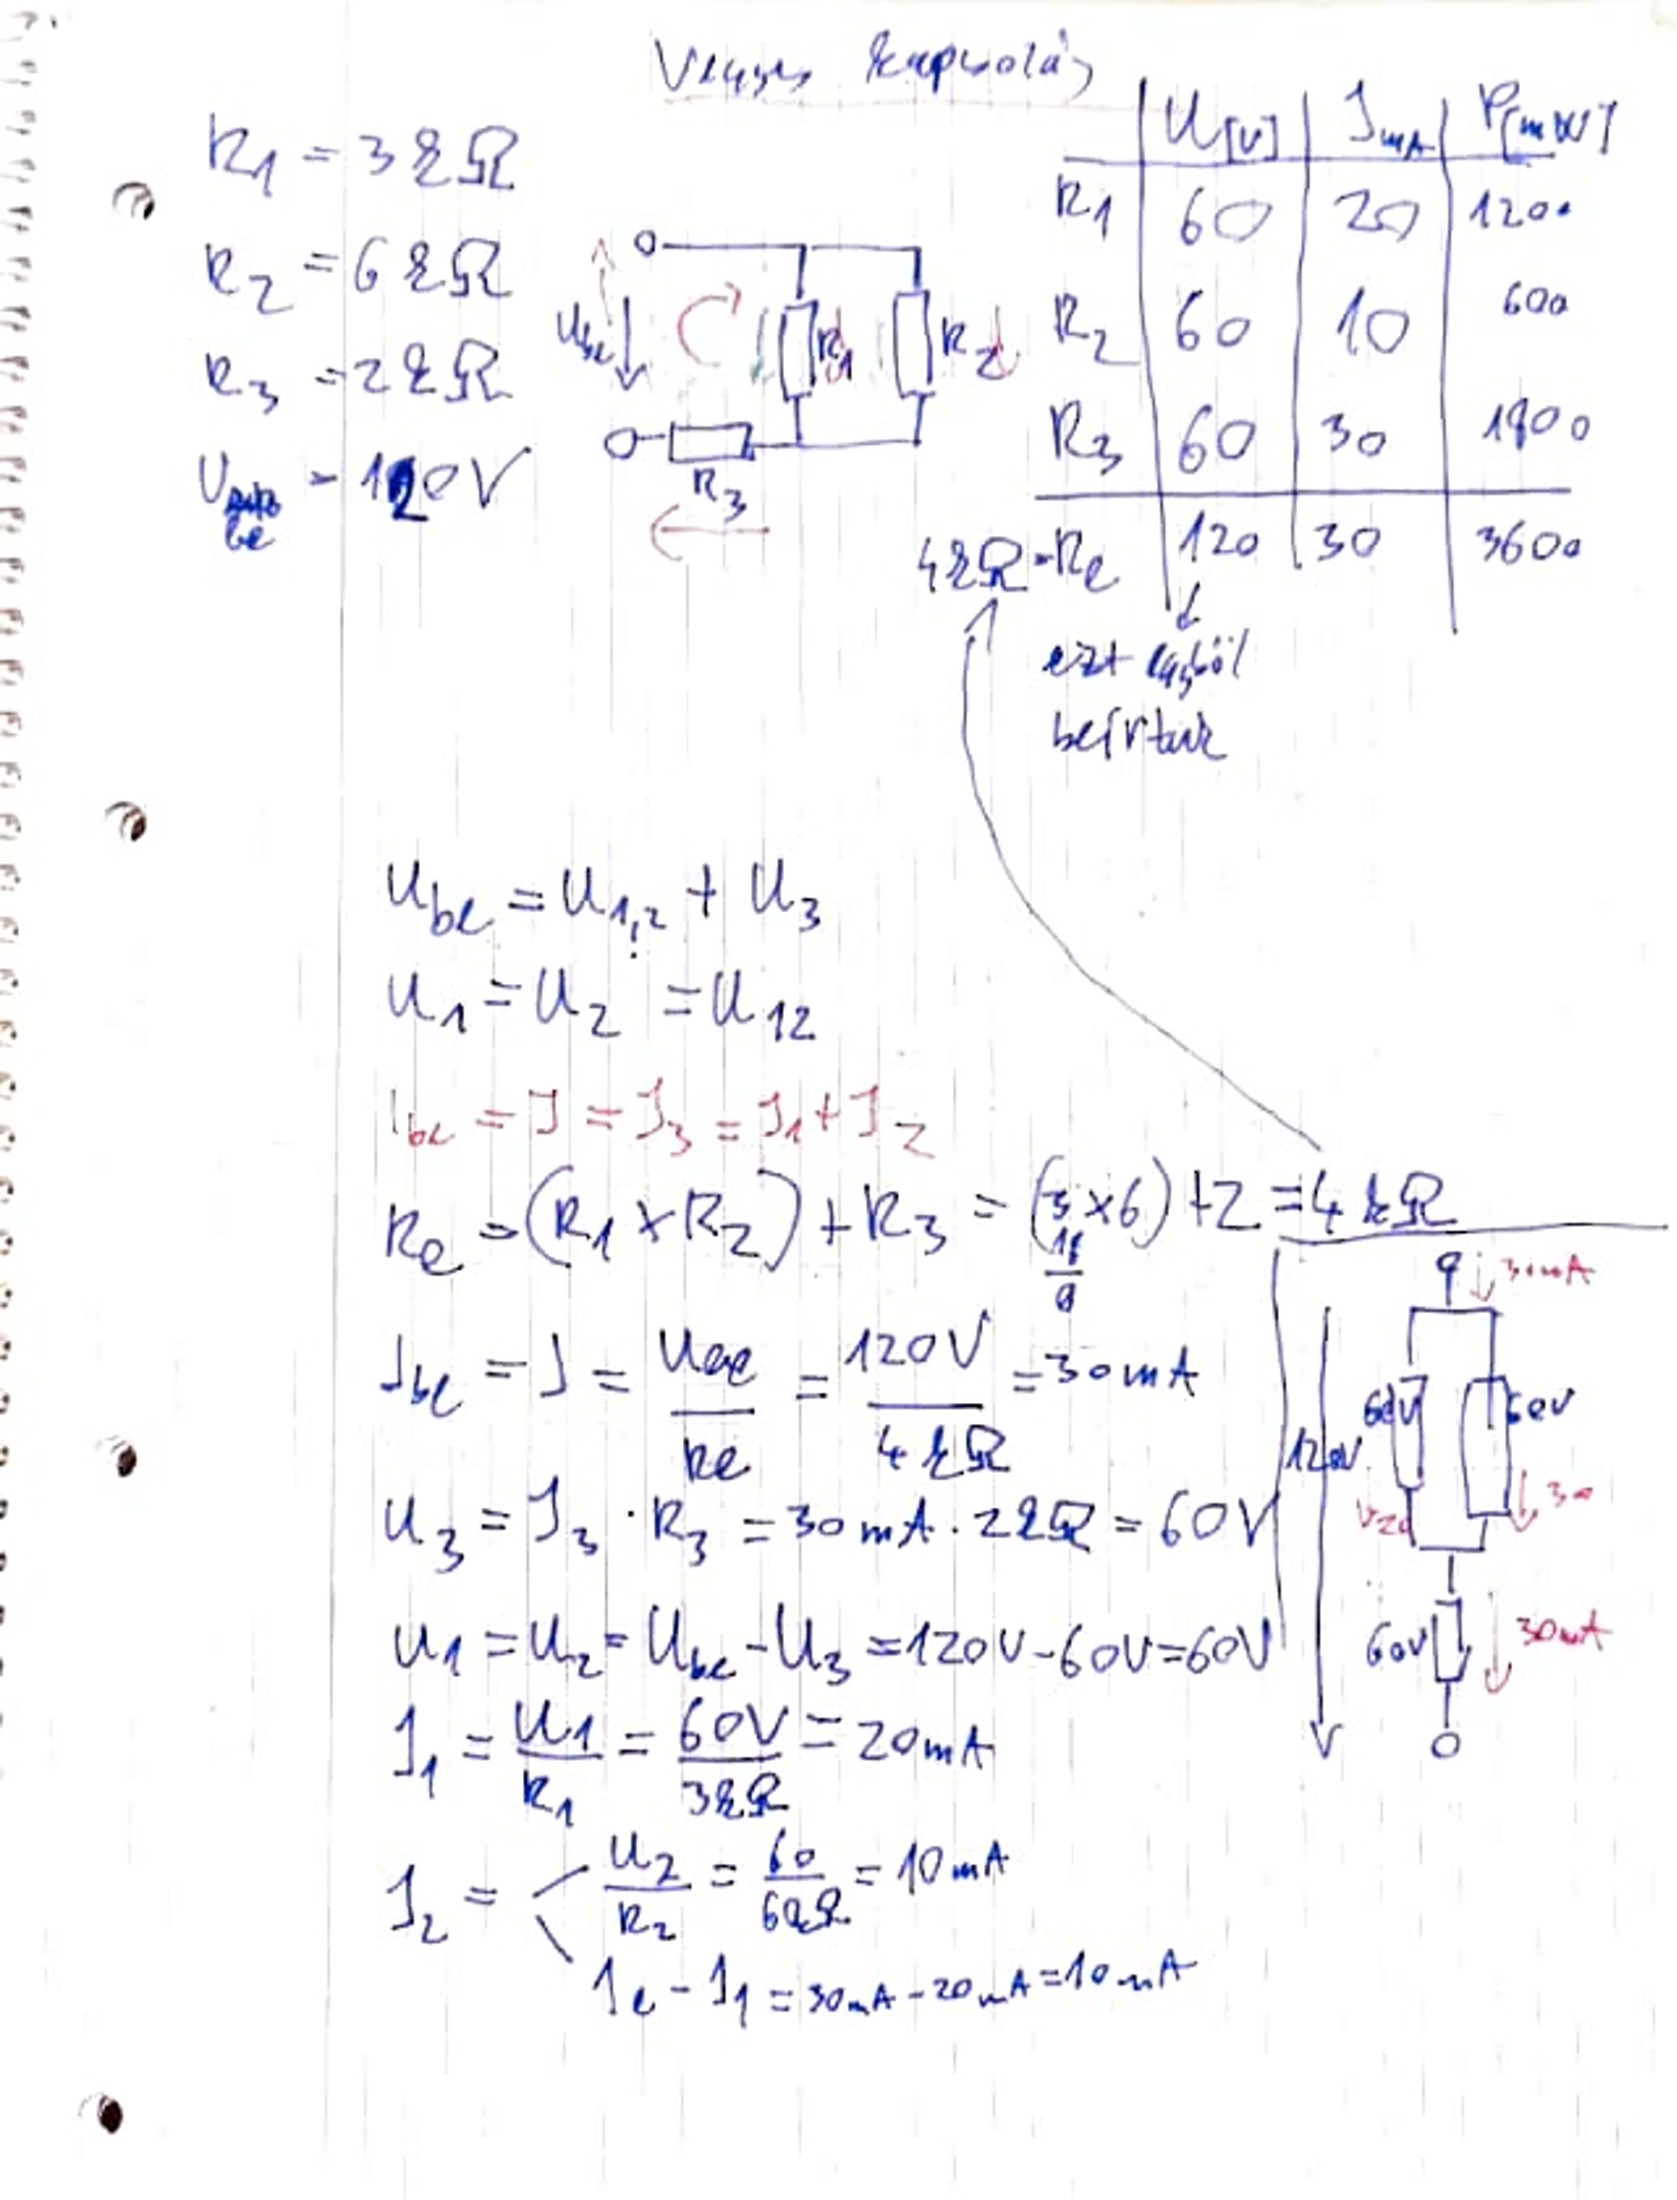 Vegyes kapcsolás
R1 = 3 kΩ
R2 = 6 kΩ
R3 = 2 kΩ
Ube = 120V
Ube
R1
R2
R3
U[V] I mA P[mW]
R1 60 20 1200
R2 60 10 600
R3 60 30 1800
4kΩ = Re 120 30 3600
ezt egyből
beírtuk
Ube = U1,2 + U3
U1 = U2 = U12
Ibe = I = I3 = I1 + I2
Re = (R1 × R2) + R3 = (3 × 6) + 2 = 4 kΩ
18/9
Ibe = I = Ube/Re = 120V/4kΩ = 30mA
U3 = I3 · R3 = 30mA · 2kΩ = 60V
U1 = U2 = Ube - U3 = 120V - 60V = 60V
I1 = U1/R1 = 60V/3kΩ = 20mA
I2 = U2/R2 = 60/6kΩ = 10mA
Ie - I1 = 30mA - 20mA = 10mA
30mA
60V 60V
120V
20 30
60V 30mA